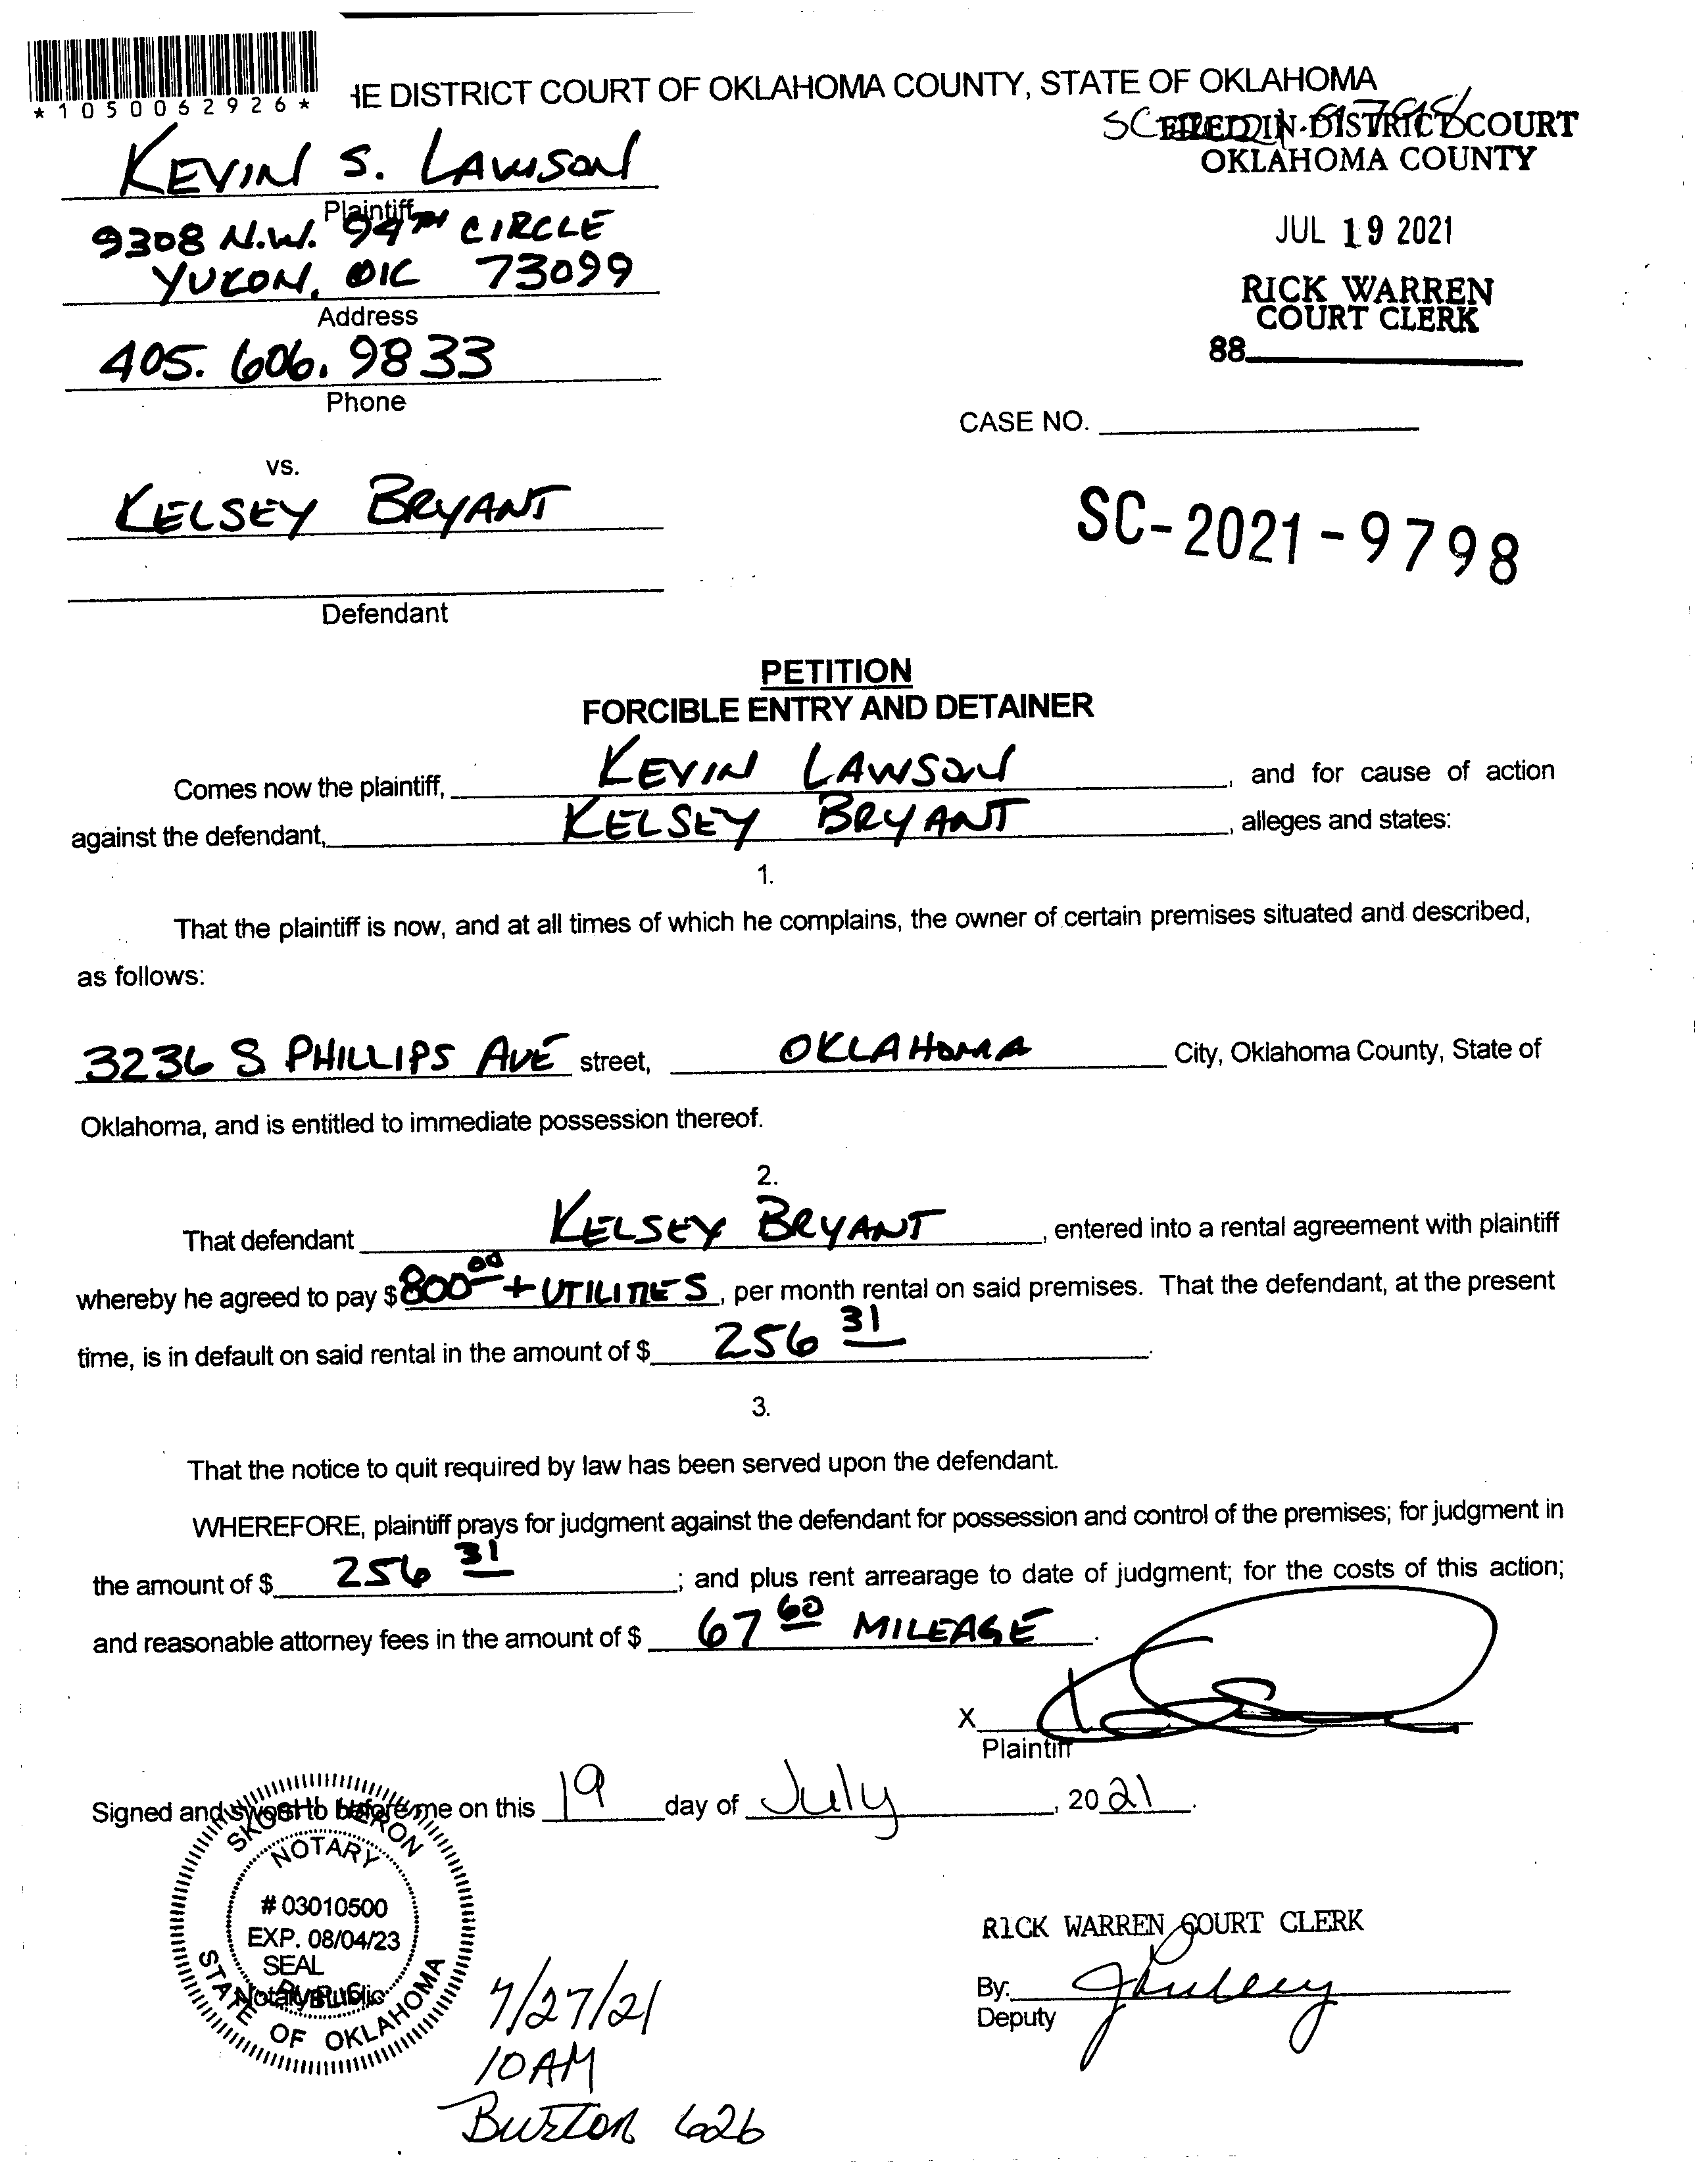 *1050062926*
HE DISTRICT COURT OF OKLAHOMA COUNTY, STATE OF OKLAHOMA
FILED IN DISTRICT COURT
OKLAHOMA COUNTY
KEVIN S. LAWSON
Plaintiff
9308 N.W. 94TH CIRCLE
YUKON, OK 73099
Address
JUL 19 2021
RICK WARREN
COURT CLERK
88
405. 606. 9833
Phone
CASE NO.
vs.
KELSEY BRYANT
SC-2021-9798
Defendant
PETITION
FORCIBLE ENTRY AND DETAINER
Comes now the plaintiff, KEVIN LAWSON, and for cause of action
against the defendant, KELSEY BRYANT, alleges and states:
1.
That the plaintiff is now, and at all times of which he complains, the owner of certain premises situated and described,
as follows:
3236 S PHILLIPS AVE street, OKLAHOMA City, Oklahoma County, State of
Oklahoma, and is entitled to immediate possession thereof.
2.
That defendant KELSEY BRYANT, entered into a rental agreement with plaintiff
whereby he agreed to pay $ 800 00 + UTILITIES, per month rental on said premises. That the defendant, at the present
time, is in default on said rental in the amount of $ 256 31.
3.
That the notice to quit required by law has been served upon the defendant.
WHEREFORE, plaintiff prays for judgment against the defendant for possession and control of the premises; for judgment in
the amount of $ 256 31; and plus rent arrearage to date of judgment; for the costs of this action;
and reasonable attorney fees in the amount of $ 67 60 MILEAGE.
X
Plaintiff
Signed and sworn to before me on this 19 day of July, 2021.
NOTARY
# 03010500
EXP. 08/04/23
SEAL
Notary Public
STATE OF OKLAHOMA
RICK WARREN COURT CLERK
By:
Deputy
7/27/21
10AM
BURTON 626